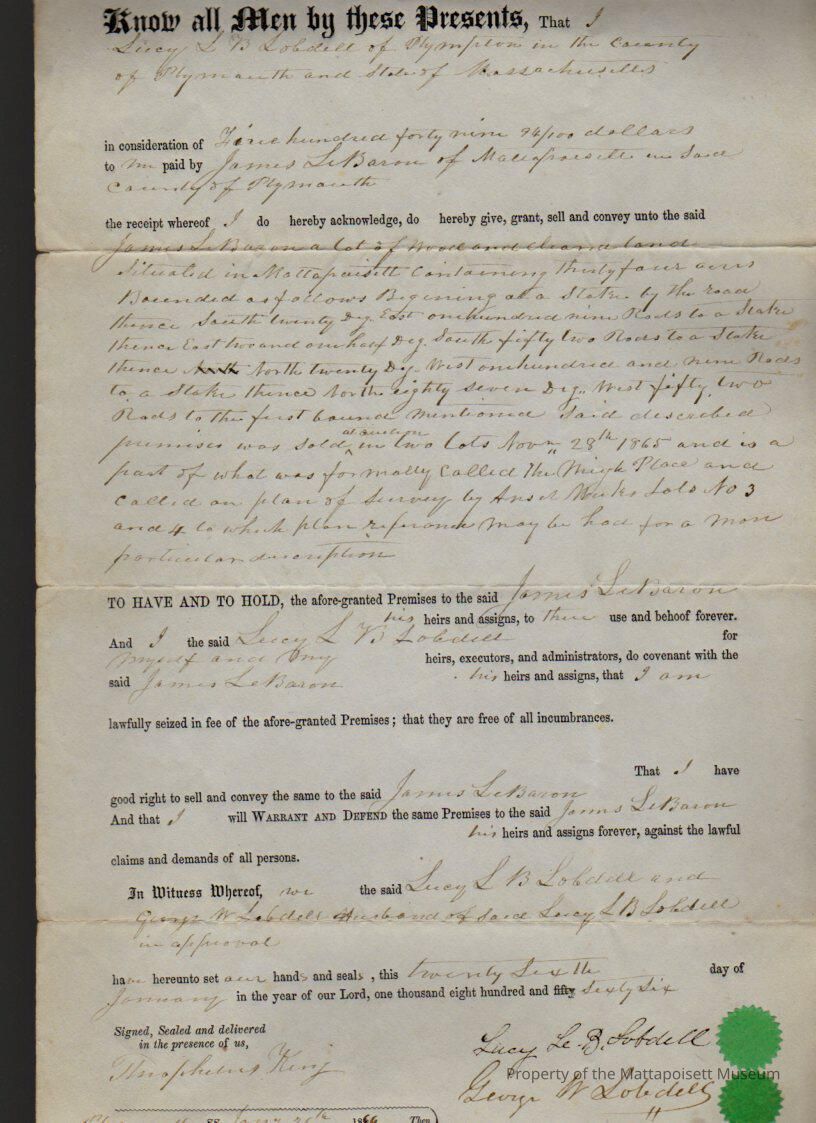 Know all Men by these Presents, That I
Lucy L B Lobdell of Plympton in the County
of Plymouth and State of Massachusetts
in consideration of Five hundred forty nine 94/100 dollars
to me paid by James LeBaron of Mattapoisett in said
County of Plymouth
the receipt whereof I do hereby acknowledge, do hereby give, grant, sell and convey unto the said
James LeBaron a lot of wood and cleared land
Situated in Mattapoisett Containing thirty four acres
Bounded as follows Begining at a Stake by the road
thence South twenty Deg. East one hundred nine Rods to a Stake
thence East two and one half Deg. South fifty two Rods to a Stake
thence North twenty Deg. West one hundred and nine Rods
to a Stake thence North eighty seven Deg. West fifty two
Rods to the first bound mentioned Said described
premises was sold at auction in two lots Novr. 28th 1865 and is a
part of what was formally called the Place and
called on plan of Survey by Ansel Weeks Lots No 3
and 4 to which plan referance may be had for a more
particular description
TO HAVE AND TO HOLD, the afore-granted Premises to the said James LeBaron
his heirs and assigns, to their use and behoof forever.
And I the said Lucy L B Lobdell for
myself and my heirs, executors, and administrators, do covenant with the
said James LeBaron his heirs and assigns, that I am
lawfully seized in fee of the afore-granted Premises; that they are free of all incumbrances.
That I have
good right to sell and convey the same to the said James LeBaron
And that I will WARRANT AND DEFEND the same Premises to the said James LeBaron
his heirs and assigns forever, against the lawful
claims and demands of all persons.
In Witness Whereof, we the said Lucy L B Lobdell and
George W Lobdell Husband of said Lucy L B Lobdell
in approval
have hereunto set our hands and seals, this twenty Sixth day of
January in the year of our Lord, one thousand eight hundred and fifty Sixty Six
Signed, Sealed and delivered
in the presence of us,
Theophilus King
Lucy Le. B. Lobdell
Property of the Mattapoisett Museum
George W Lobdell
ss 1866 Then